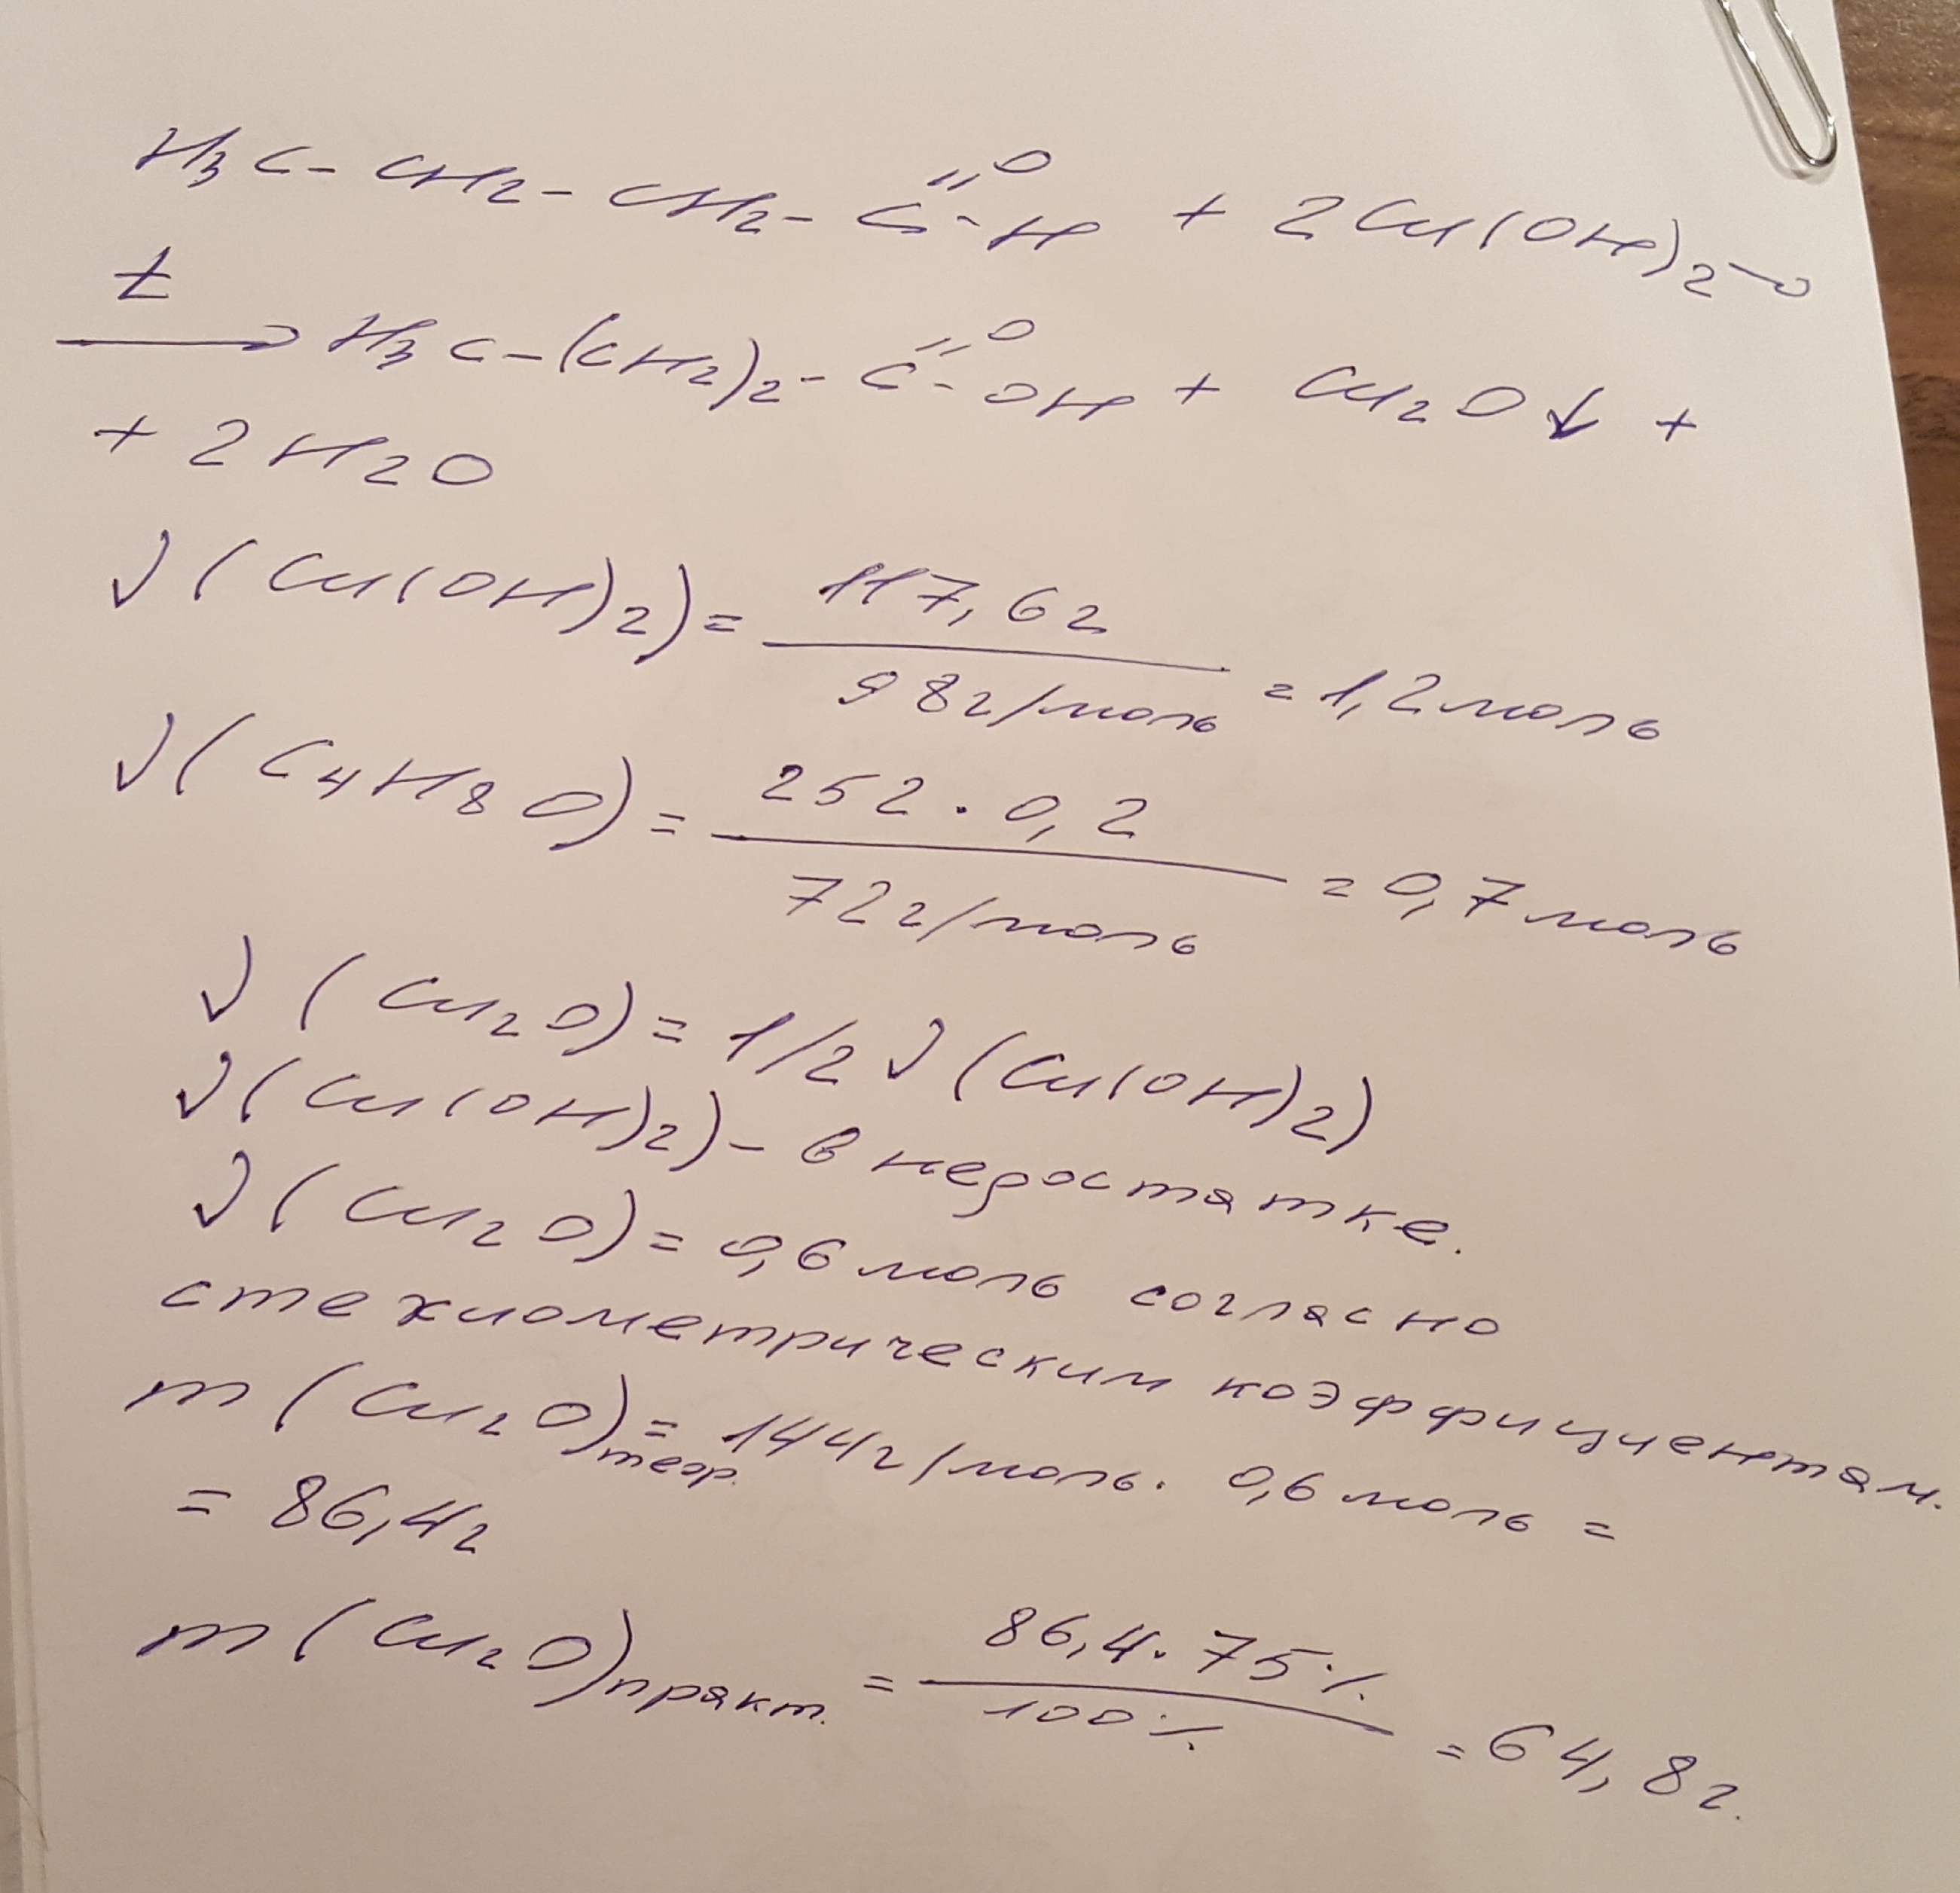 H₃C - CH₂ - CH₂ - C(=O) - H + 2Cu(OH)₂ →
t
→ H₃C - (CH₂)₂ - C(=O) - OH + Cu₂O↓ +
+ 2H₂O
ν(Cu(OH)₂) = 117,6г / 98г/моль = 1,2моль
ν(C₄H₈O) = 252 · 0,2 / 72г/моль = 0,7моль
ν(Cu₂O) = 1/2 ν(Cu(OH)₂)
ν(Cu(OH)₂) - в недостатке.
ν(Cu₂O) = 0,6 моль согласно
стехиометрическим коэффициентам.
m(Cu₂O)теор. = 144г/моль · 0,6 моль =
= 86,4г
m(Cu₂O)практ. = 86,4 · 75% / 100% = 64,8г.